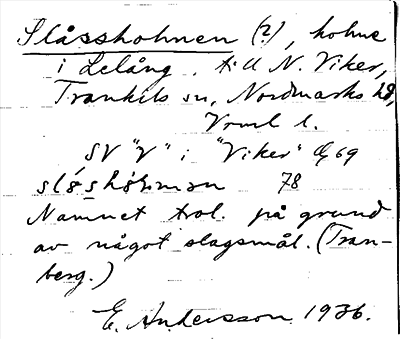 Slåssholmen (?), holme
i Lelång, till N. Viker,
Trankils sn, Nordmarks hd,
Vrml l.
SV "V" i "Viker" Ek 69
78
Namnet trol. på grund
av något slagsmål. (Tran-
berg.)
E. Andersson 1936.